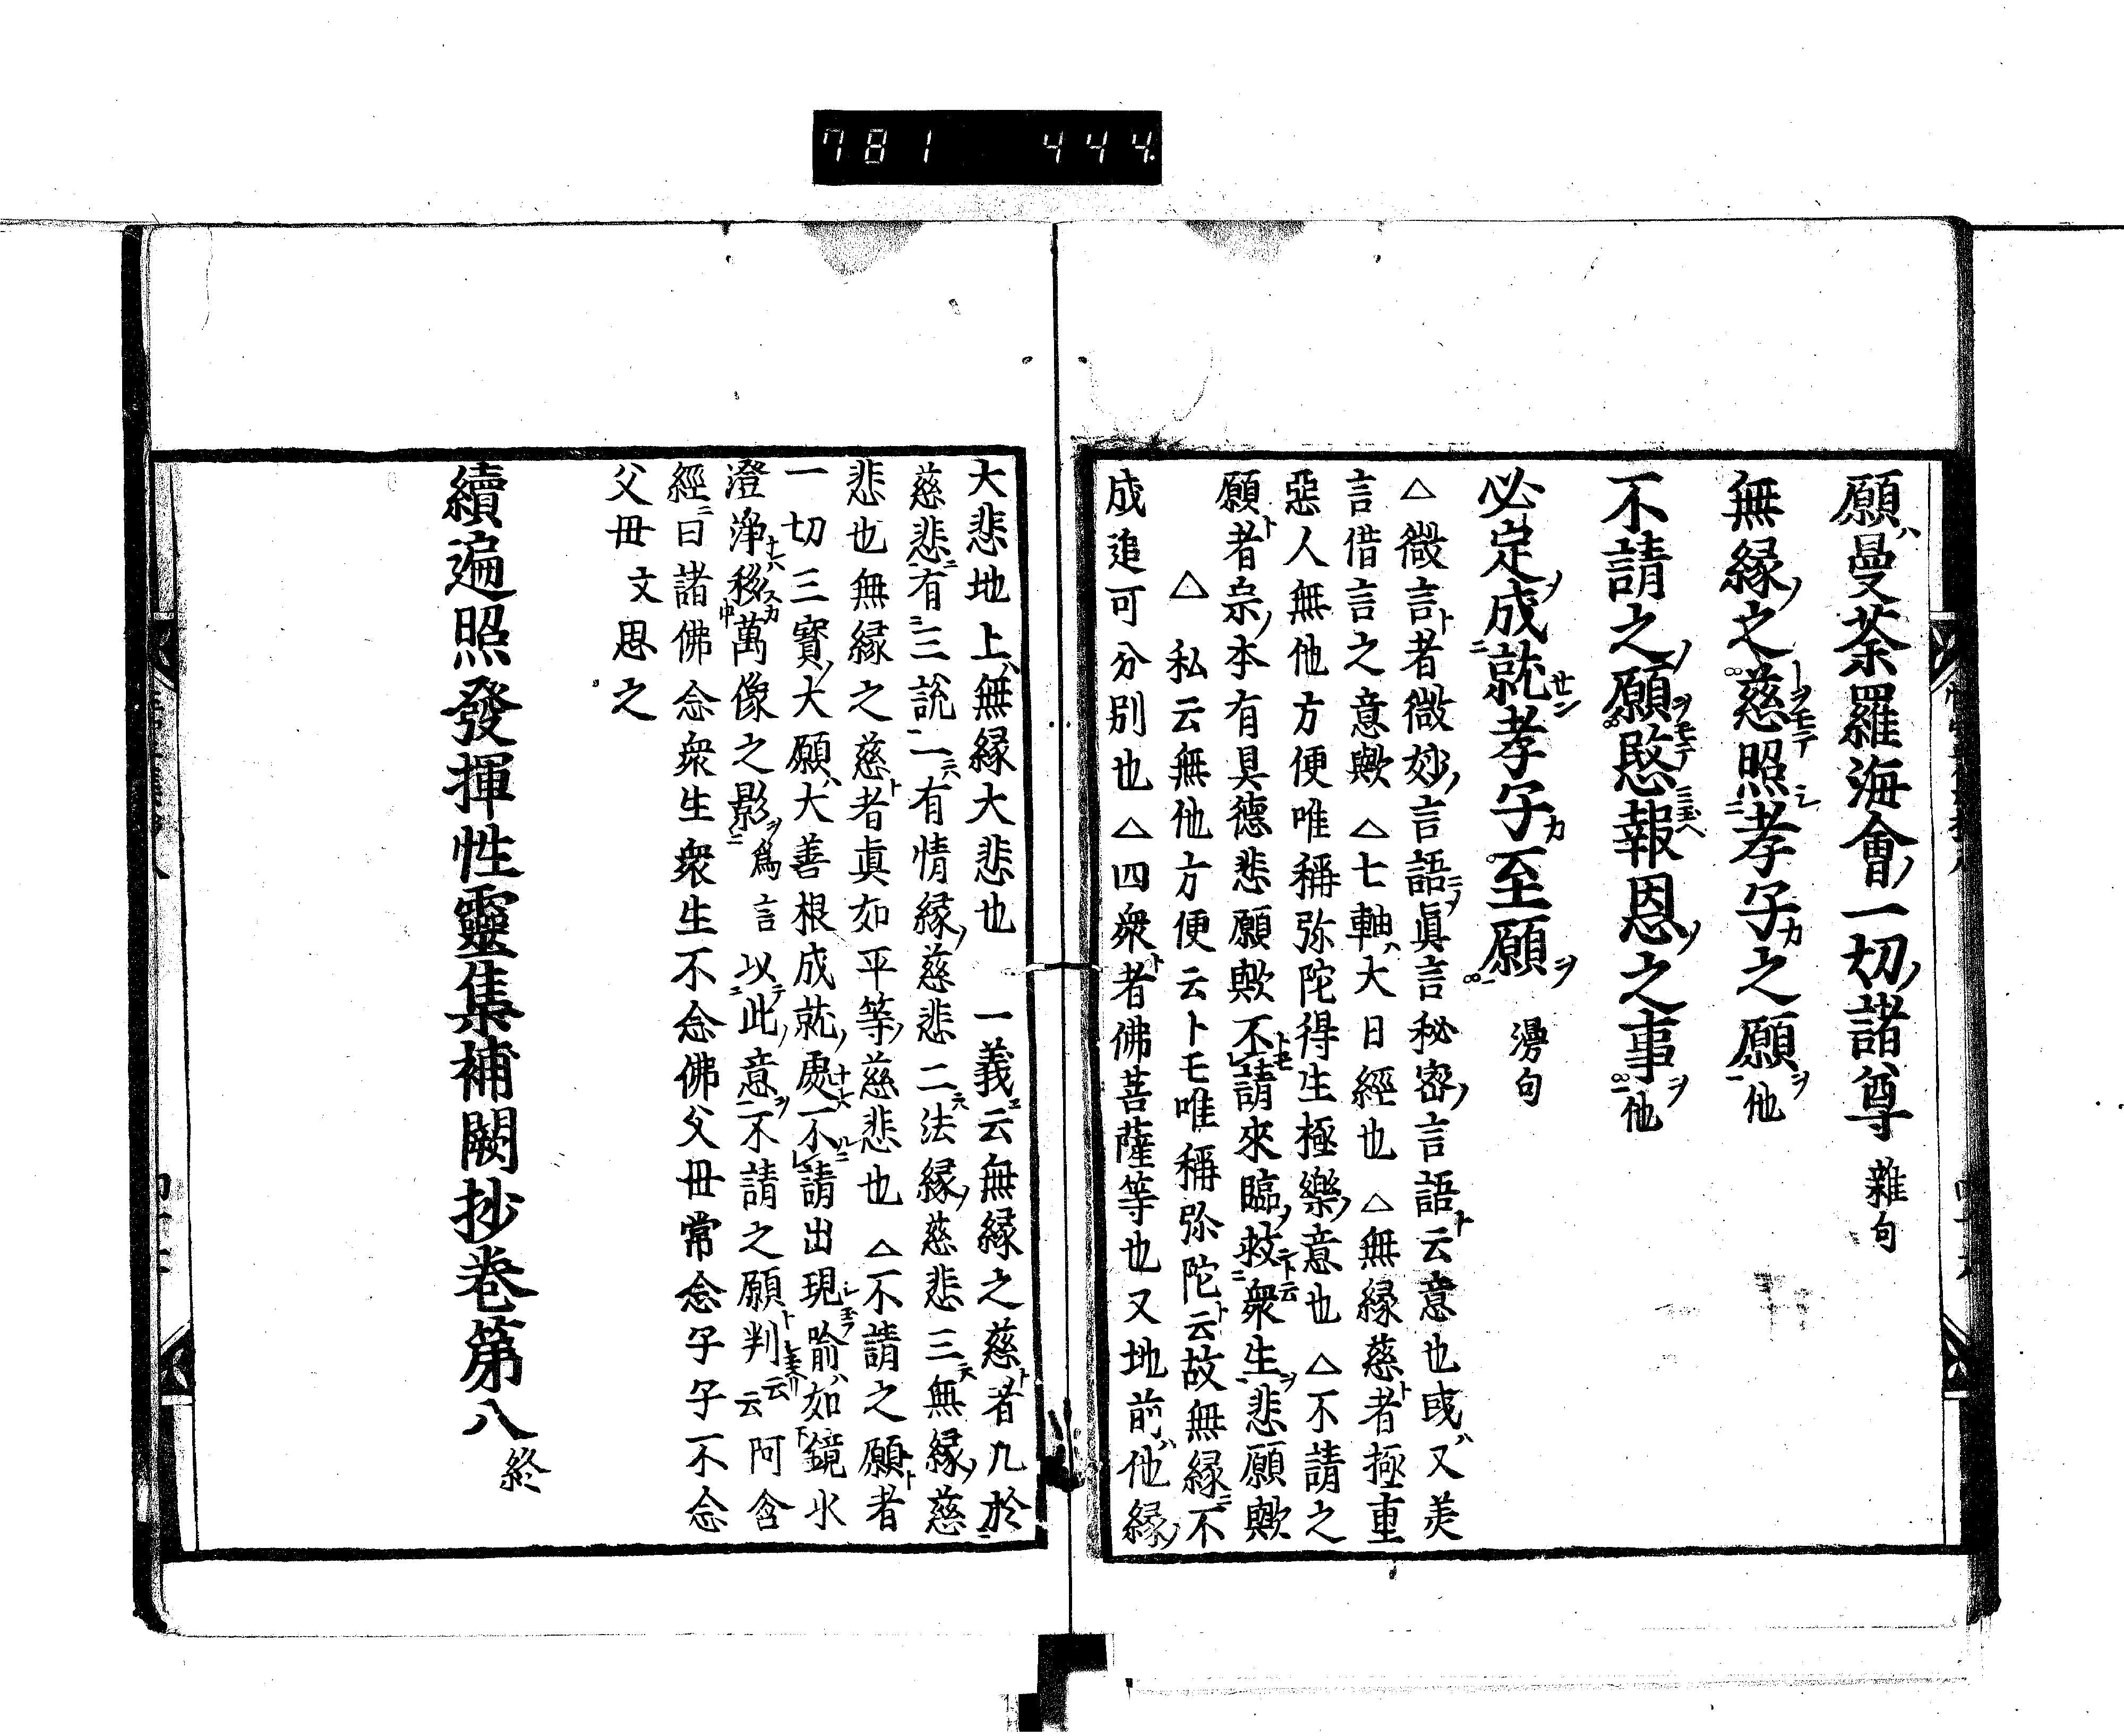 781 444
願曼荼羅海會一切諸尊 雜句
無縁之慈照孝子之願 他
不請之願愍報恩之事 他
必定成就孝子至願 漫句
△微言者微妙言語眞言秘密言語云意也或又美
言借言之意歟△七軸大日經也△無縁慈者極重
惡人無他方便唯稱弥陀得生極樂意也△不請之
願者宗本有具德悲願歟不請來臨救衆生悲願歟
△私云無他方便云卜モ唯稱弥陀云故無縁不
成追可分別也△四衆者佛菩薩等也又地前他縁
大悲地上無縁大悲也 一義云無縁之慈者凡於
慈悲有三説一有情縁慈悲二法縁慈悲三無縁慈
悲也無縁之慈者眞如平等慈悲也△不請之願者
一切三寶大願大善根成就處不請出現喻如鏡水
澄淨移萬像之影爲言以此意不請之願判云云阿含
經曰諸佛念衆生衆生不念佛父母常念子子不念
父母文思之
續遍照發揮性靈集補闕抄卷第八 終